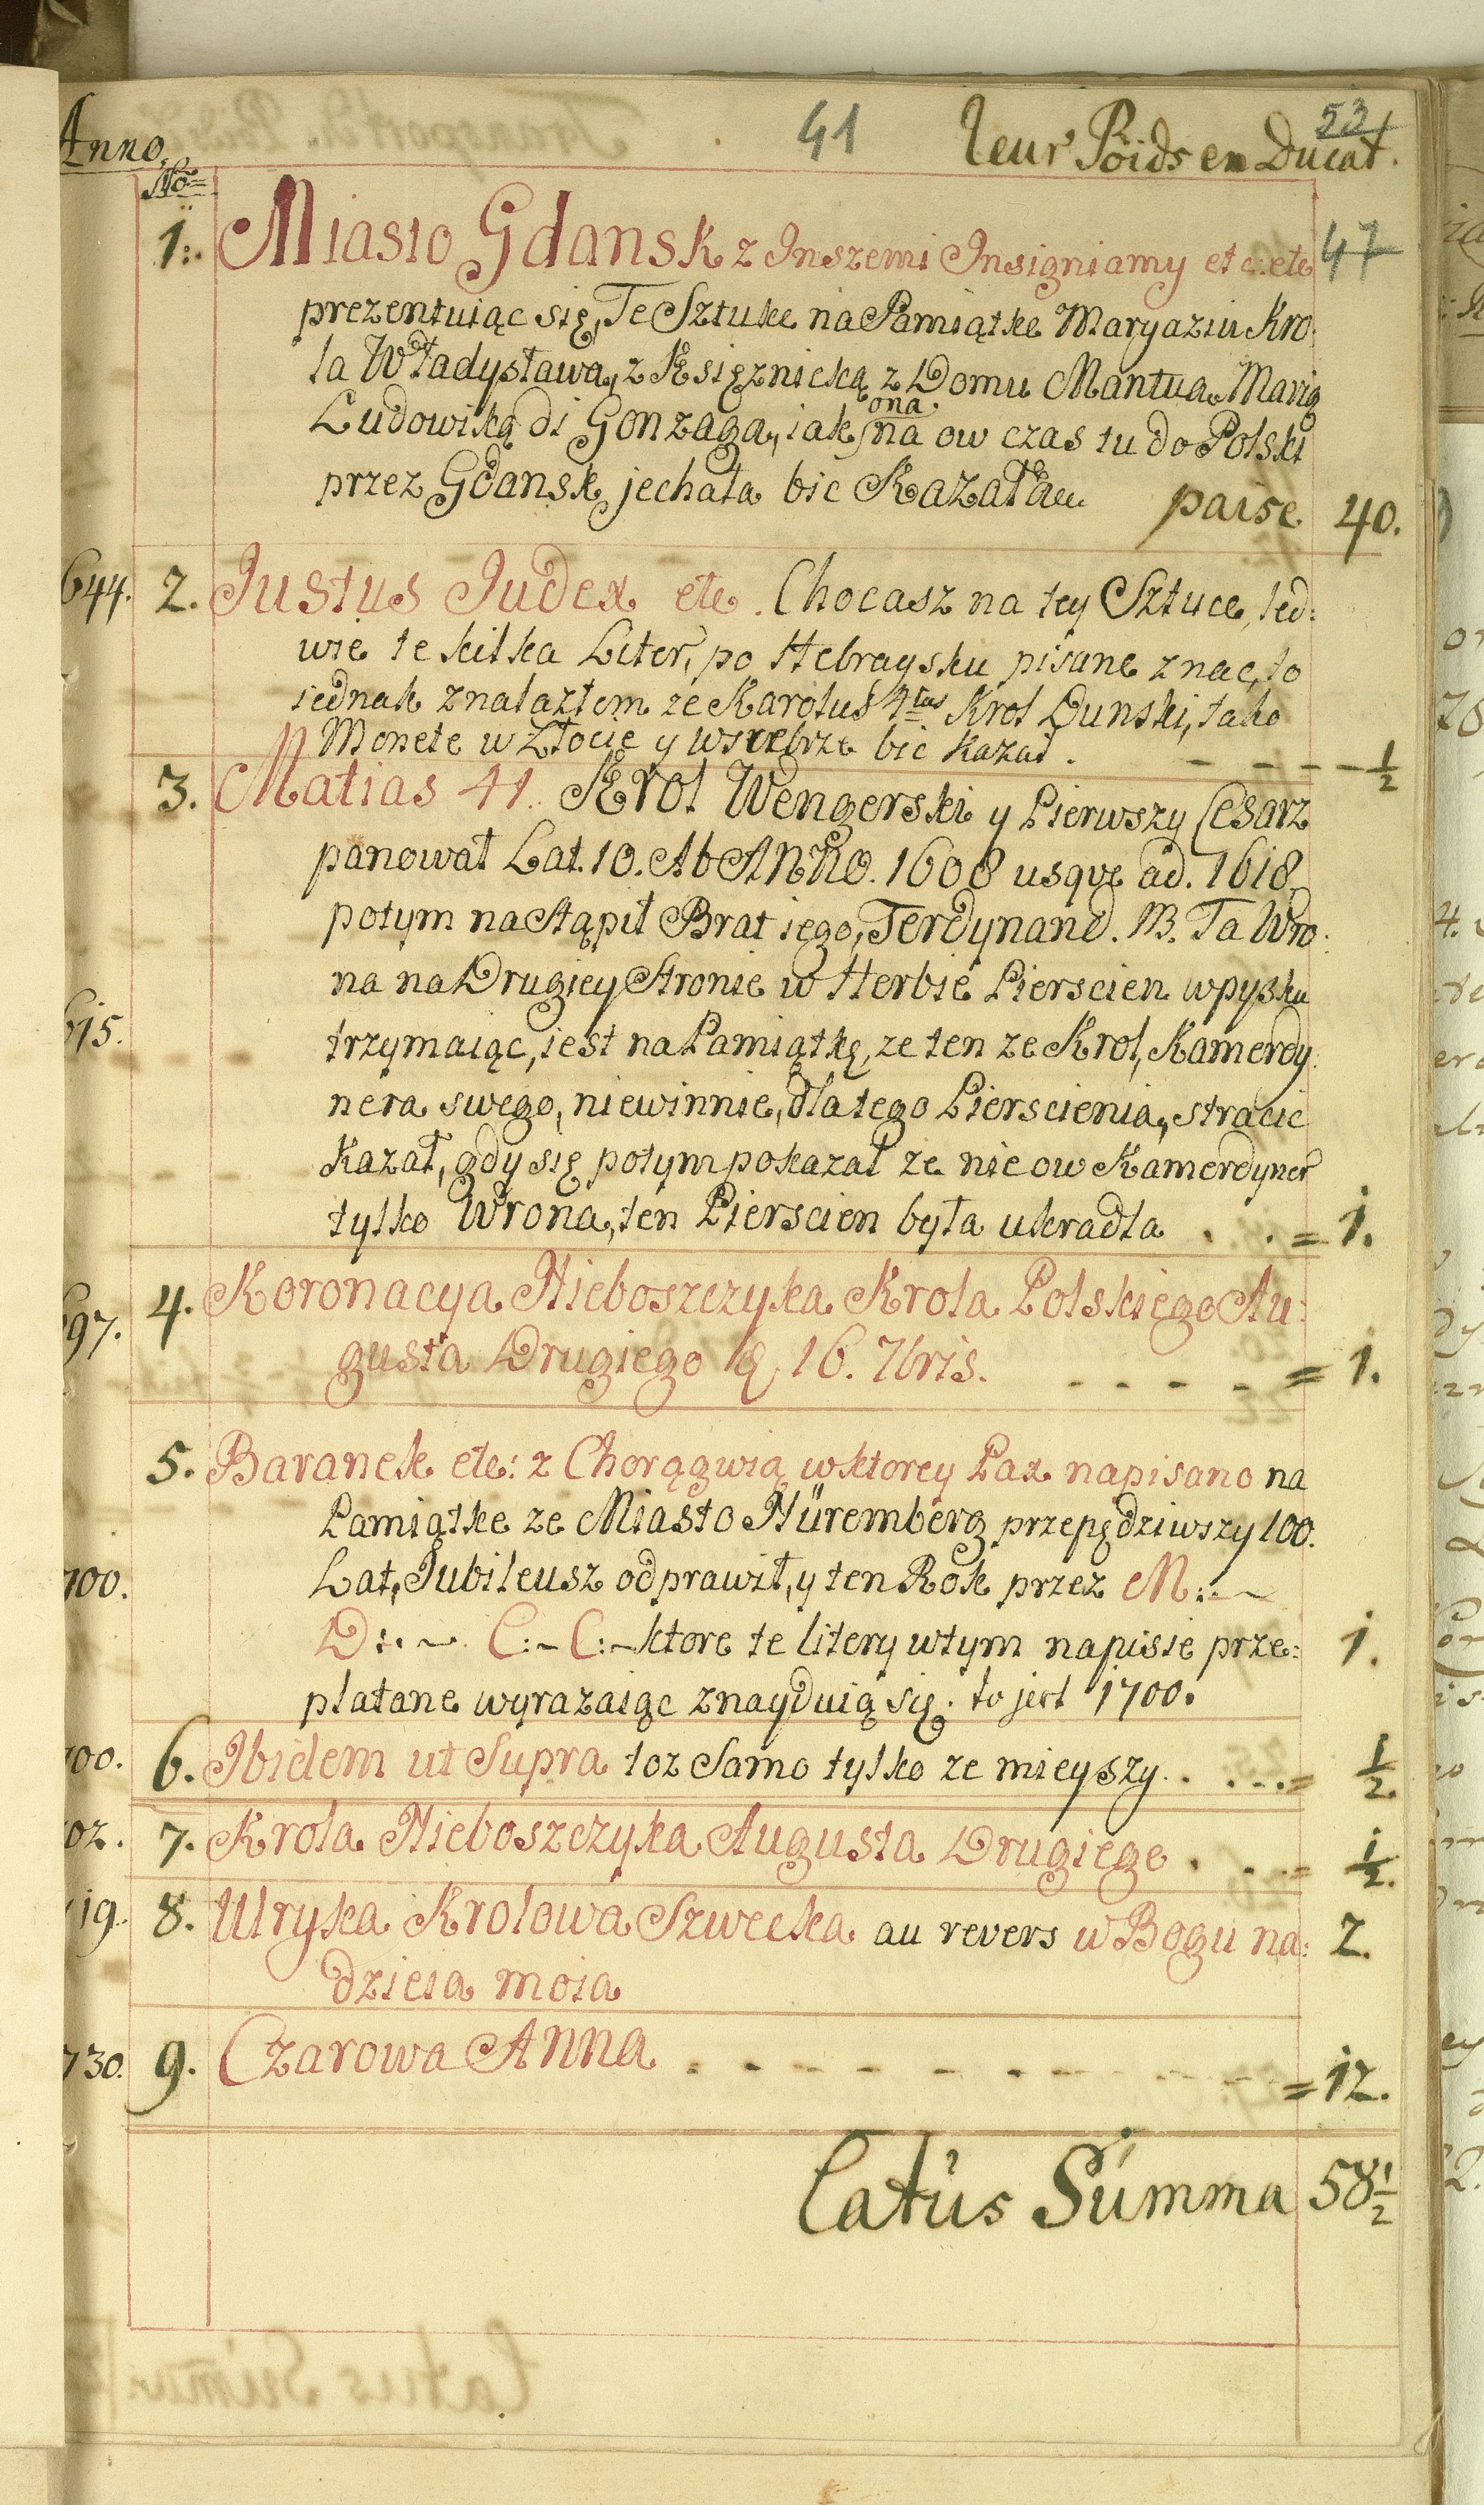 Anno.
No
41
53
leur Poids en Ducat.
1. Miasto Gdansk z Inszemi Insigniamy etc: etc 47
prezentuiąc się, Te Sztuke na Pamiątke Maryaziu Kro:
la Władysława, z Księznicką z Domu Mantua Marią
Ludowiką di Gonzaga, iak ona na ow czas tu do Polski
przez Gdansk jechała bic Kazała paise 40.
644. 2. Justus Judex etc. Chocasz na tey Sztuce, led:
wie te kilka Liter, po Hebraysku pisane znac, to
iednak znalazłem ze Karolus 4tus Krol Dunski, tako
Monete w Złocie y wsrebrze bic kazał. - - - - ½
3. Matias 41. Krol Wengerski y Pierwszy Cesarz
panował Lat. 10. Ab Anno. 1608 usqve ad. 1618.
potym nastąpił Brat iego, Ferdynand. B. Ta Wro:
na na Drugiey Stronie w Herbie Pierscien wpysku
615. trzymaiąc, iest na Pamiątkę, ze ten ze Krol, Kamerdy:
nera swego, niewinnie, dla tego Pierscienia, stracic
Kazał, gdy się potym pokazał ze nie ow Kamerdyner
tylko Wrona, ten Pierscien była ukradła . . = 1.
697. 4. Koronacya Nieboszczyka Krola Polskiego Au:
gusta Drugiego 16. 7bris. - - - - = 1.
5. Baranek etc: z Chorągwią wktorey Pax napisano na
Pamiątke ze Miasto Nüremberg przepędziwszy 100.
700. Lat, Jubileusz odprawił, y ten Rok przez M:~
D:. ~. C:~ C:~ ktore te litery wtym napisie prze: 1.
platane wyrazaiąc znayduią się. to jest 1700.
700. 6. Ibidem ut Supra toz Samo tylko ze mieyszy. . ... = ½
702. 7. Krola Nieboszczyka Augusta Drugiego . . .. = ½.
719. 8. Ulryka Krolowa Szwecka au revers w Bogu na: 2.
dzieia moia
730. 9. Czarowa Anna - - - - - - - - = 12.
Latus Summa 58½